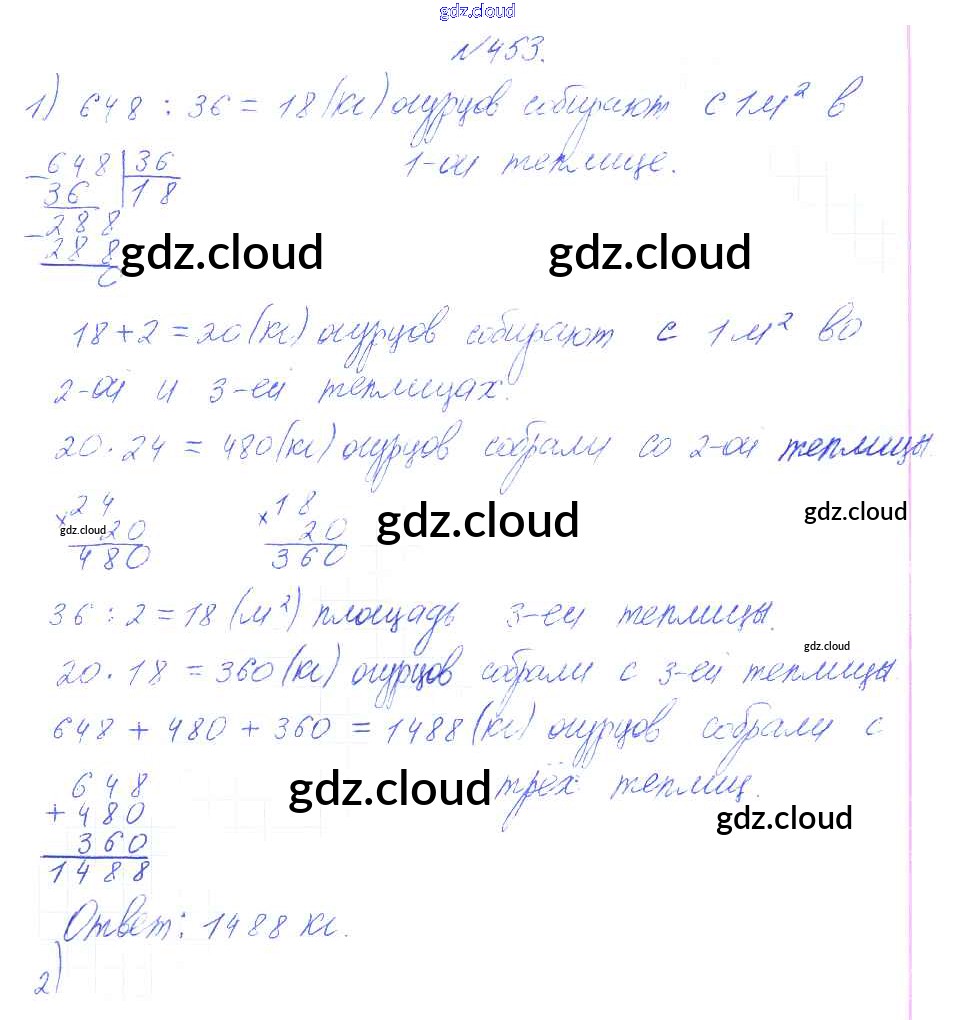 gdz.cloud
№453.
1) 648 : 36 = 18 (кг) огурцов собирают с 1 м² в
1-ой теплице.
- 648 | 36
36 | 18
- 288
288
0
gdz.cloud gdz.cloud
18 + 2 = 20 (кг) огурцов собирают с 1 м² во
2-ой и 3-ей теплицах.
20 · 24 = 480 (кг) огурцов собрали со 2-ой теплицы.
× 24 × 18
20 20
480 360
gdz.cloud gdz.cloud gdz.cloud
36 : 2 = 18 (м²) площадь 3-ей теплицы.
gdz.cloud
20 · 18 = 360 (кг) огурцов собрали с 3-ей теплицы.
648 + 480 + 360 = 1488 (кг) огурцов собрали с
трёх теплиц.
648
+ 480
360
1488
gdz.cloud
gdz.cloud
Ответ: 1488 кг.
2)